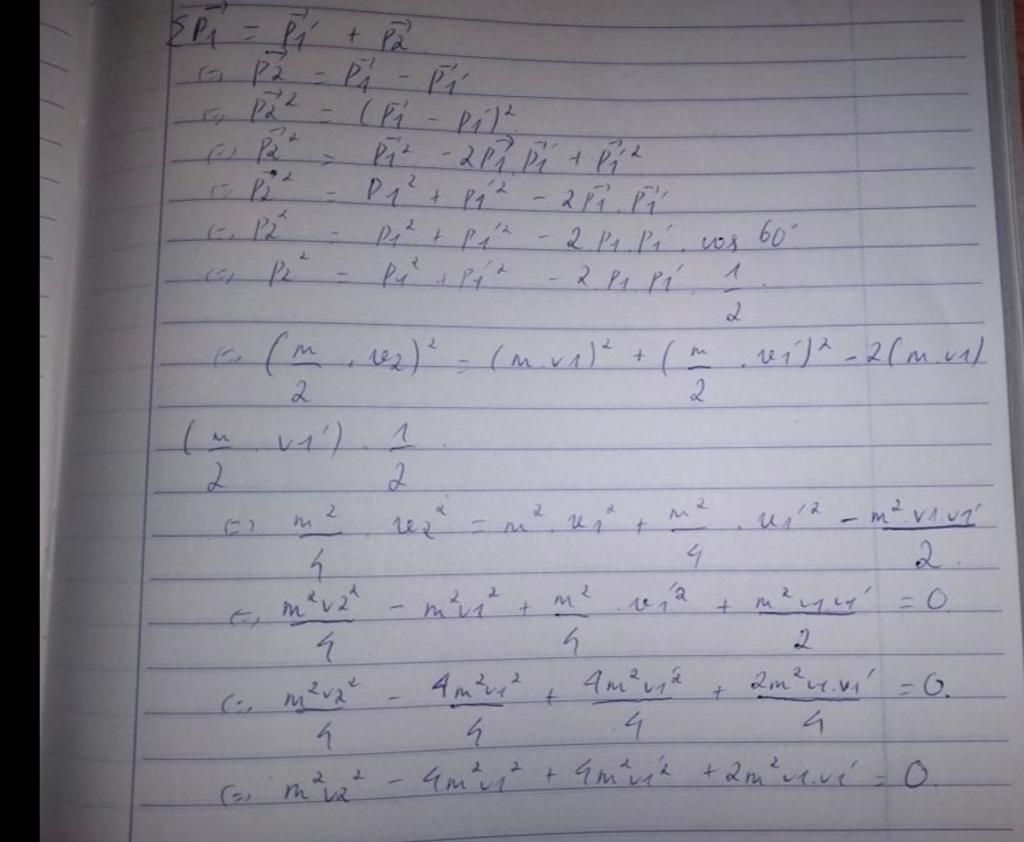 Σp⃗1 = p⃗1' + p⃗2
⇔ p⃗2 = p⃗1 - p⃗1'
⇔ p⃗2² = (p⃗1 - p1')²
⇔ p⃗2² = p⃗1² - 2p⃗1.p⃗1' + p⃗1'²
⇔ p⃗2² = p1² + p1'² - 2p⃗1.p⃗1'
⇔ p2² = p1² + p1'² - 2 p1.p1'.cos 60°
⇔ p2² = p1² + p1'² - 2 p1 p1'. 1/2.
⇔ (m/2 . v2)² = (m.v1)² + (m/2 . v1')² - 2(m.v1)
(m/2 . v1') . 1/2.
⇔ m²/4 . v2² = m². v1² + m²/4 . v1'² - m².v1.v1'/2.
⇔ m²v2²/4 - m²v1² + m²/4 . v1'² + m²v1.v1'/2 = 0
⇔ m²v2²/4 - 4m²v1²/4 + 4m²v1'²/4 + 2m²v1.v1'/4 = 0.
⇔ m²v2² - 4m²v1² + 4m²v1'² + 2m²v1.v1' = 0.